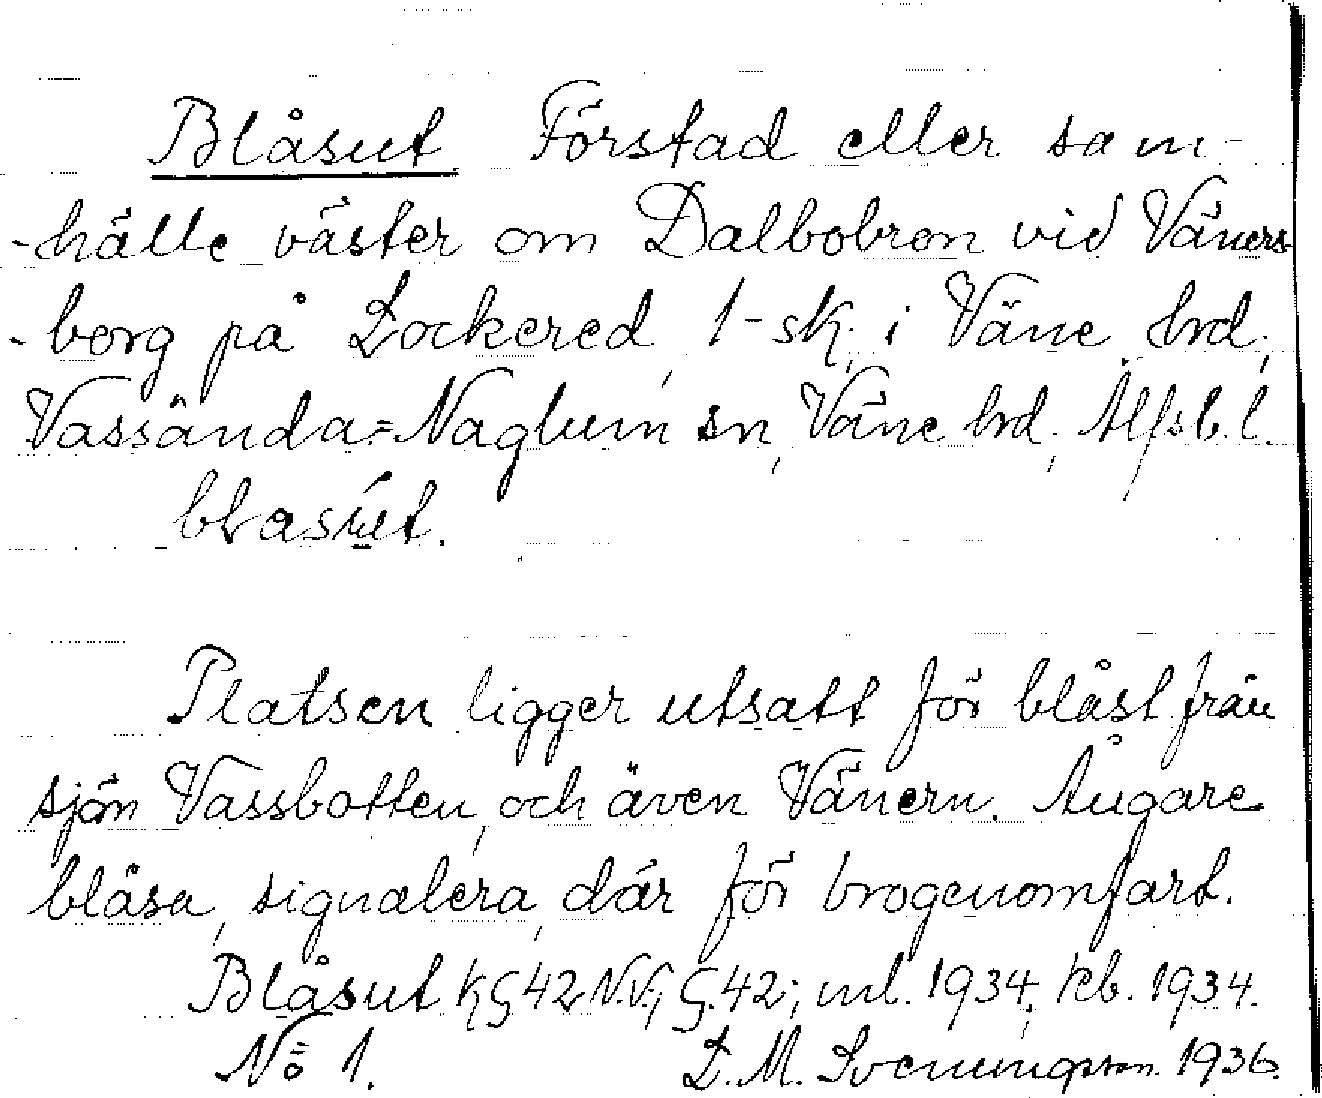 Blåsut Förstad eller sam-
-hälle väster om Dalbobron vid Väners-
-borg på Lockered, 1-sk. i Väne hrd,
Vassända=Naglum sn, Väne hrd, Älfsb. l.
blåsút.
Platsen ligger utsatt för blåst från
sjön Vassbotten, och även Vänern. Ångare
blåsa, signalera, där för brogenomfart.
Blåsut K, G 42 N.V.; G. 42; ml. 1934; kb. 1934.
No 1. D. M. Svenungsson. 1936.